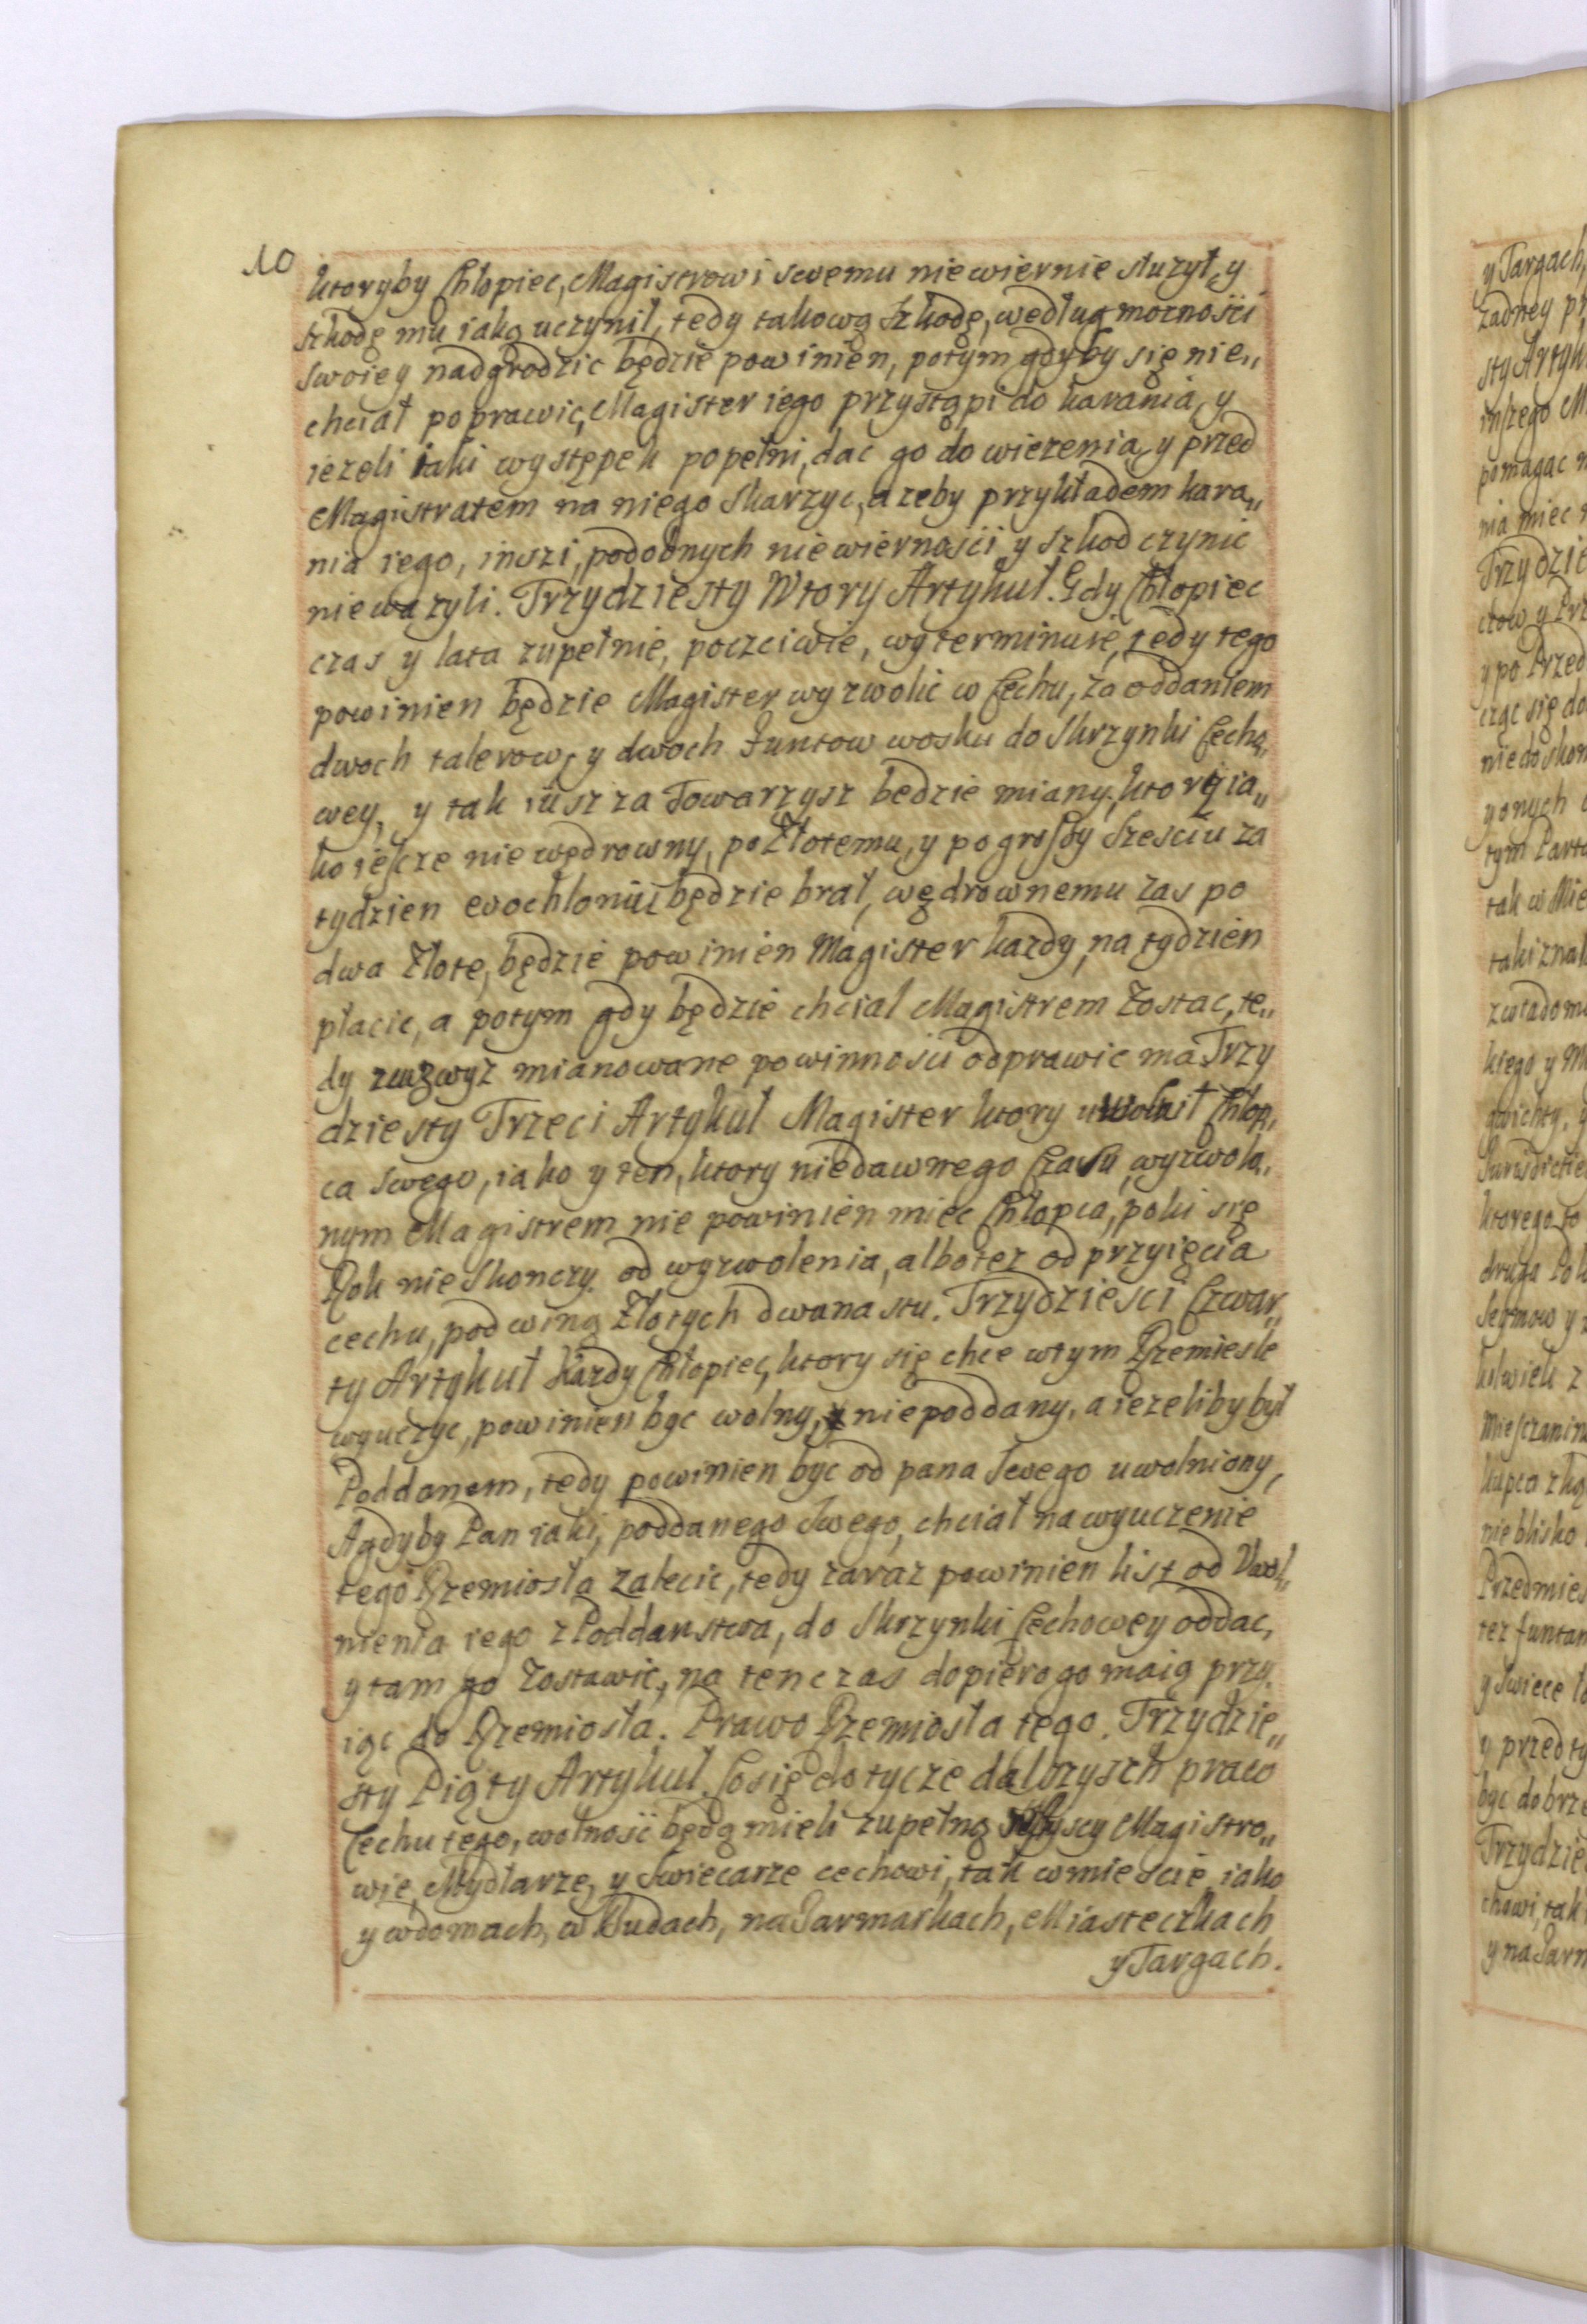 10
Ktoryby Chłopiec, Magistrowi swemu niewiernie służył, y
szkodę mu iaką uczynił, tedy takową szkodę, według możności
swoiey nadgrodzic będzie powinien, potym gdyby się nie„
chciał poprawic, Magister iego przystąpi do karania, y
iezeli iaki występek popełni, dac go do wiezenia, y przed
Magistratem na niego skarzyc, a zeby przykładem kara„
nia iego, inszi, podobnych niewierności y szkod czynic
niewazyli. Trzydziesty Wtory Artykuł. Gdy Chłopiec
czas y lata zupełnie, poczciwie, wyterminuie, tedy tego
powinien będzie Magister wyzwolic w Cechu, za oddaniem
dwoch talerow, y dwoch funtow wosku do Skrzynki Cecho„
wey, y tak iusz za Towarzysz bedzie miany, ktory ia„
ko iescze nie wędrowny, po Złotemu, y po groszy szesciu za
tydzien będzie brał, wędrownemu zas po
dwa Złote, będzie powinien Magister kazdy, na tydzien
płacic, a potym gdy będzie chcial Magistrem zostac, te„
dy zwyz mianowane powinności odprawic ma. Trzy
dziesty Trzeci Artykuł Magister ktory uwolnił Chłop„
ca swego, iako y ten, ktory niedawnego Czasu, wyzwolo„
nym Magistrem nie powinien miec Chłopca, poki się
Rok nie skonczy od wyzwolenia, albo tez od przyięcia
cechu, pod winą Złotych dwanastu. Trzydziesci Czwar„
ty Artykuł Kazdy Chłopiec, ktory się chce w tym Rzemiesle
wyuczyc, powinien byc wolny, y niepoddany, a iezeliby był
Poddanem, tedy powinien byc od pana swego uwolniony,
A gdyby Pan iaki, poddanego swego, chciał na wyuczenie
tego Rzemiosła zalecic, tedy zaraz powinien list od Uwol„
nienia iego z Poddanstwa, do Skrzynki Cechowey oddac,
y tam go zostawic, na tenczas dopiero go maią przy„
iąc do Rzemiosła. Prawo Rzemiosła tego. Trzydzie„
sty Piąty Artykuł. Co się dotycze dalszysch praw
Cechu tego, wolność będą mieli zupełną wszyscy Magistro„
wie, Mydlarze, y Swiecarze cechowi, tak w miescie, iako
y w domach, w Budach, na Jarmarkach, Miasteczkach
y Targach.